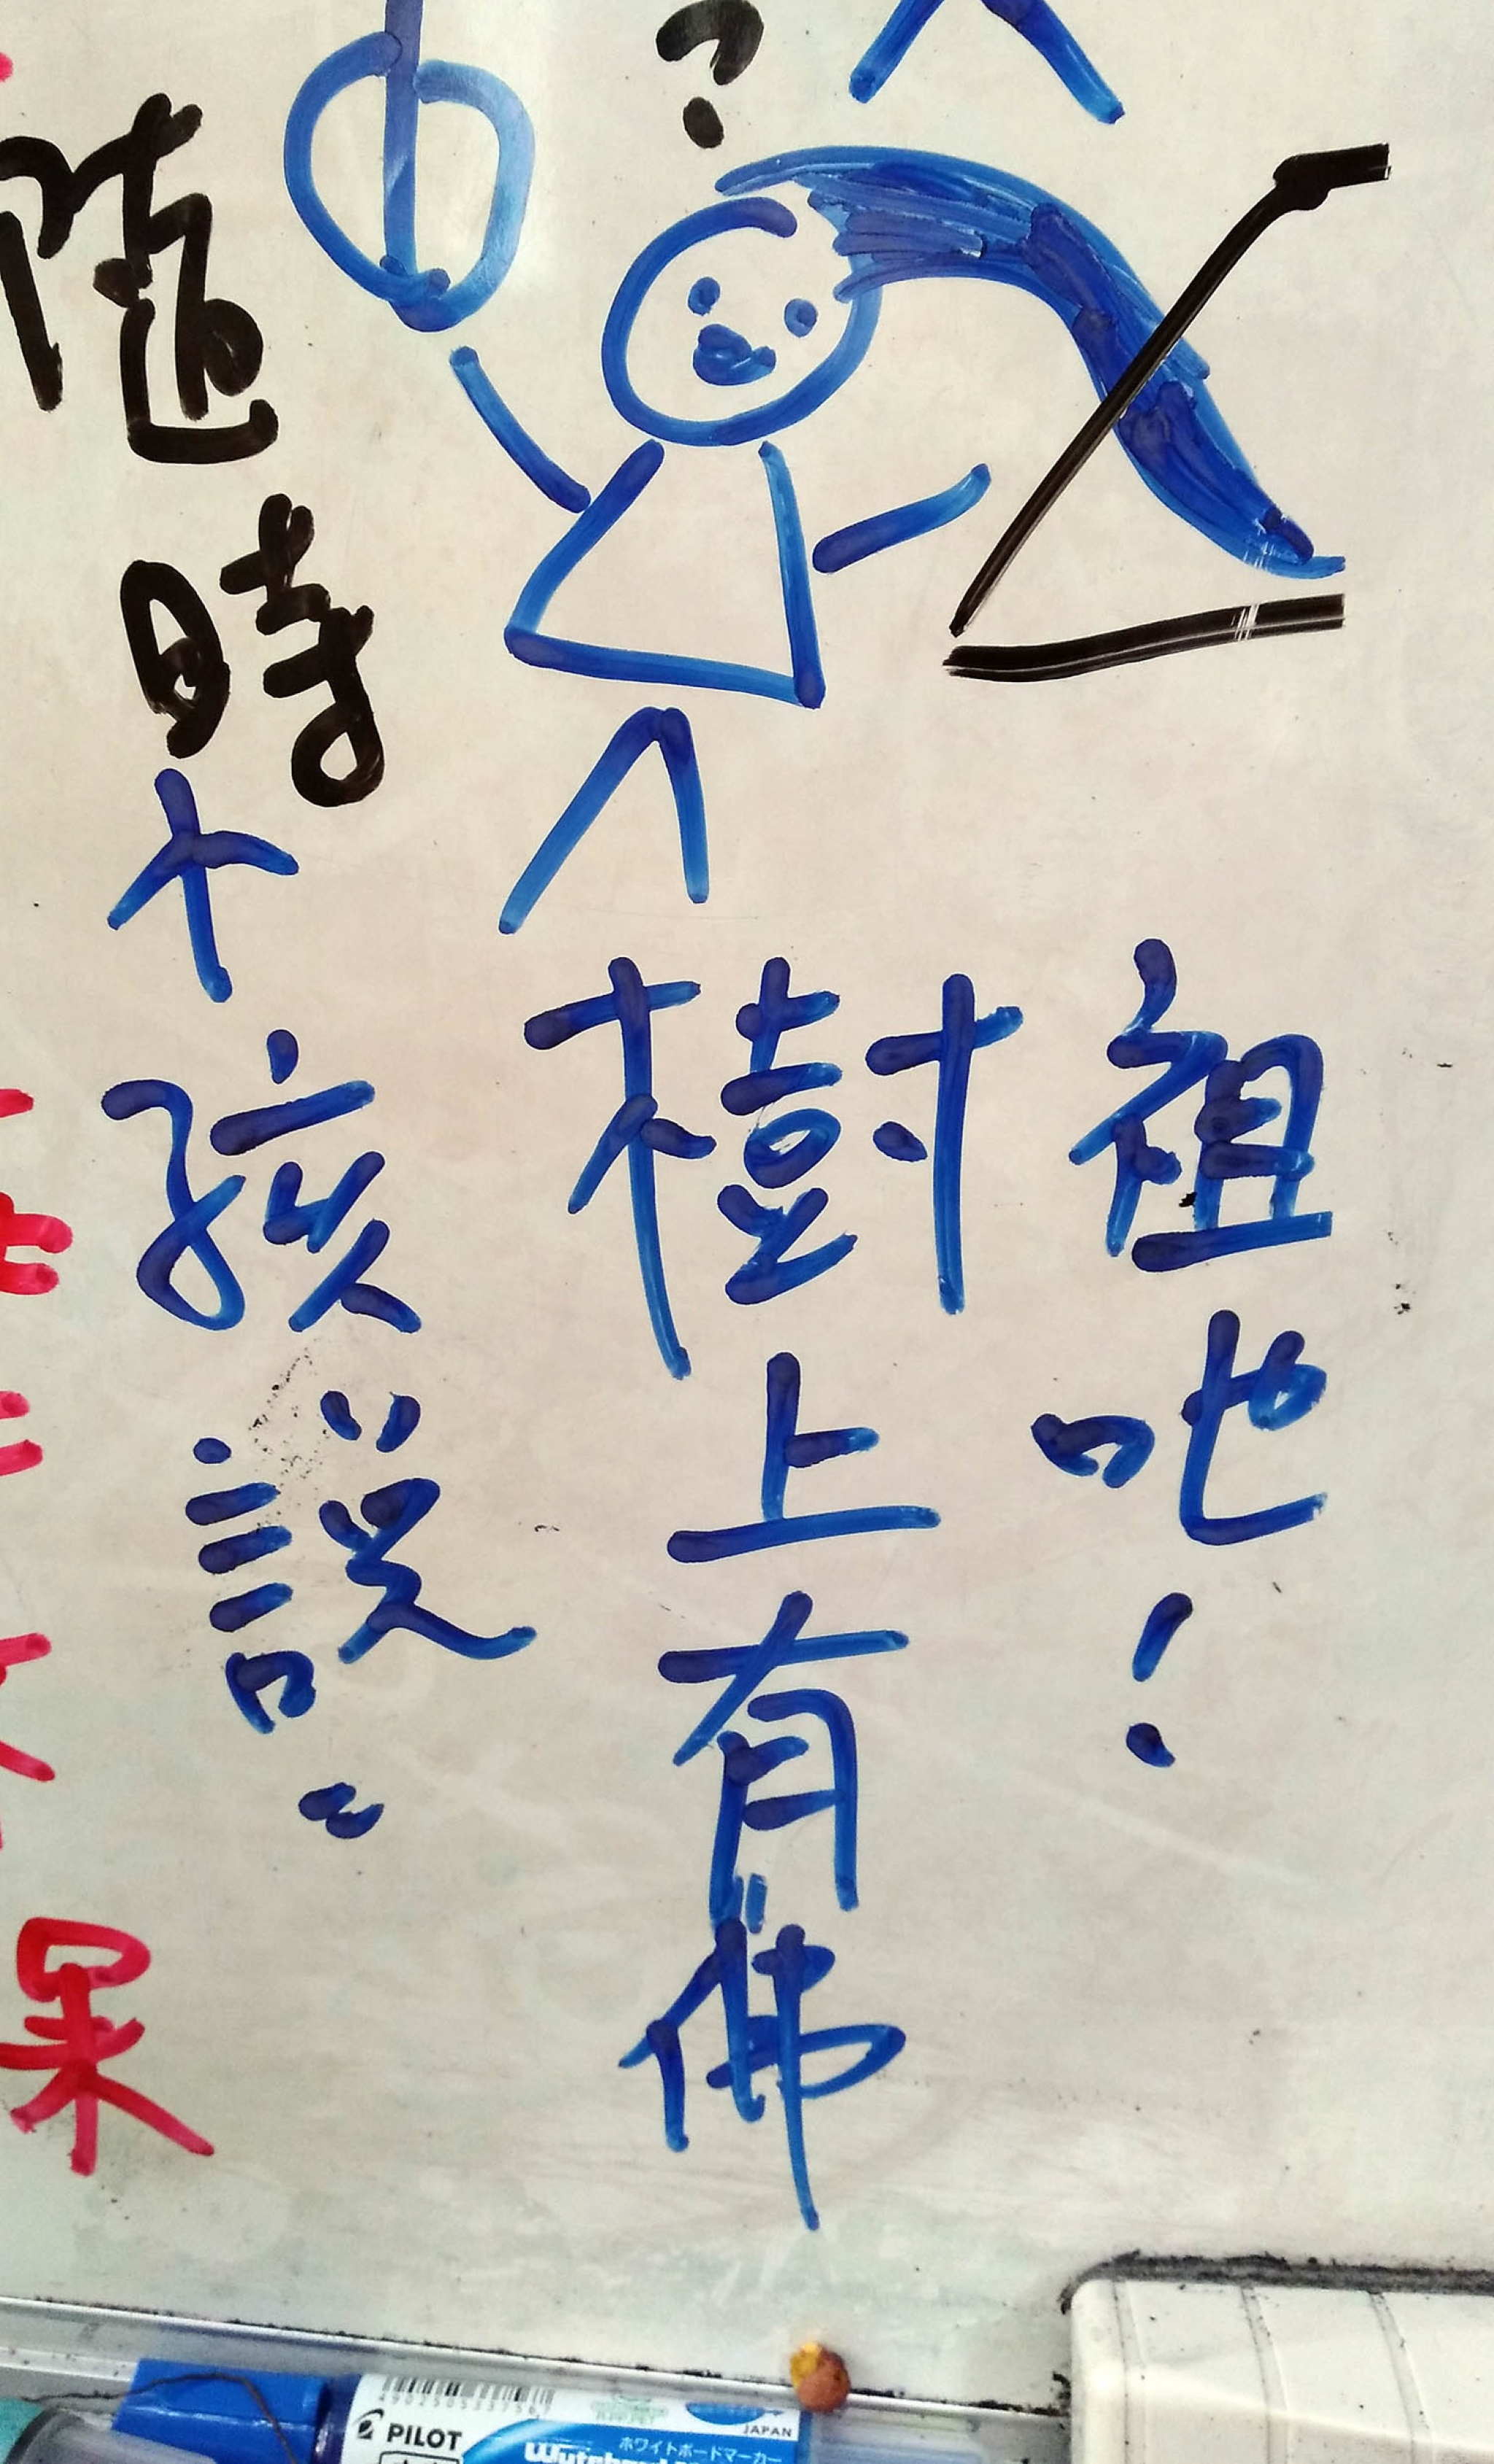 果
隨時
小孩說:
?
樹上有佛
祖吔!
PILOT
JAPAN
ホワイトボードマーカー